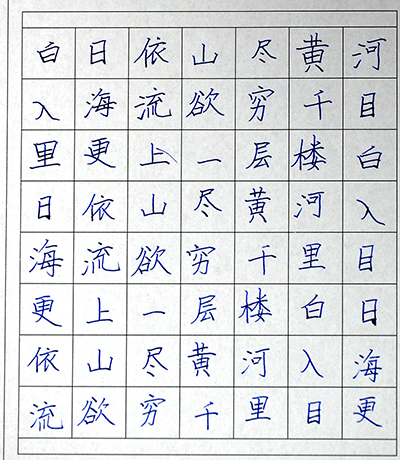 白日依山尽黄河
入海流欲穷千目
里更上一层楼白
日依山尽黄河入
海流欲穷千里目
更上一层楼白日
依山尽黄河入海
流欲穷千里目更